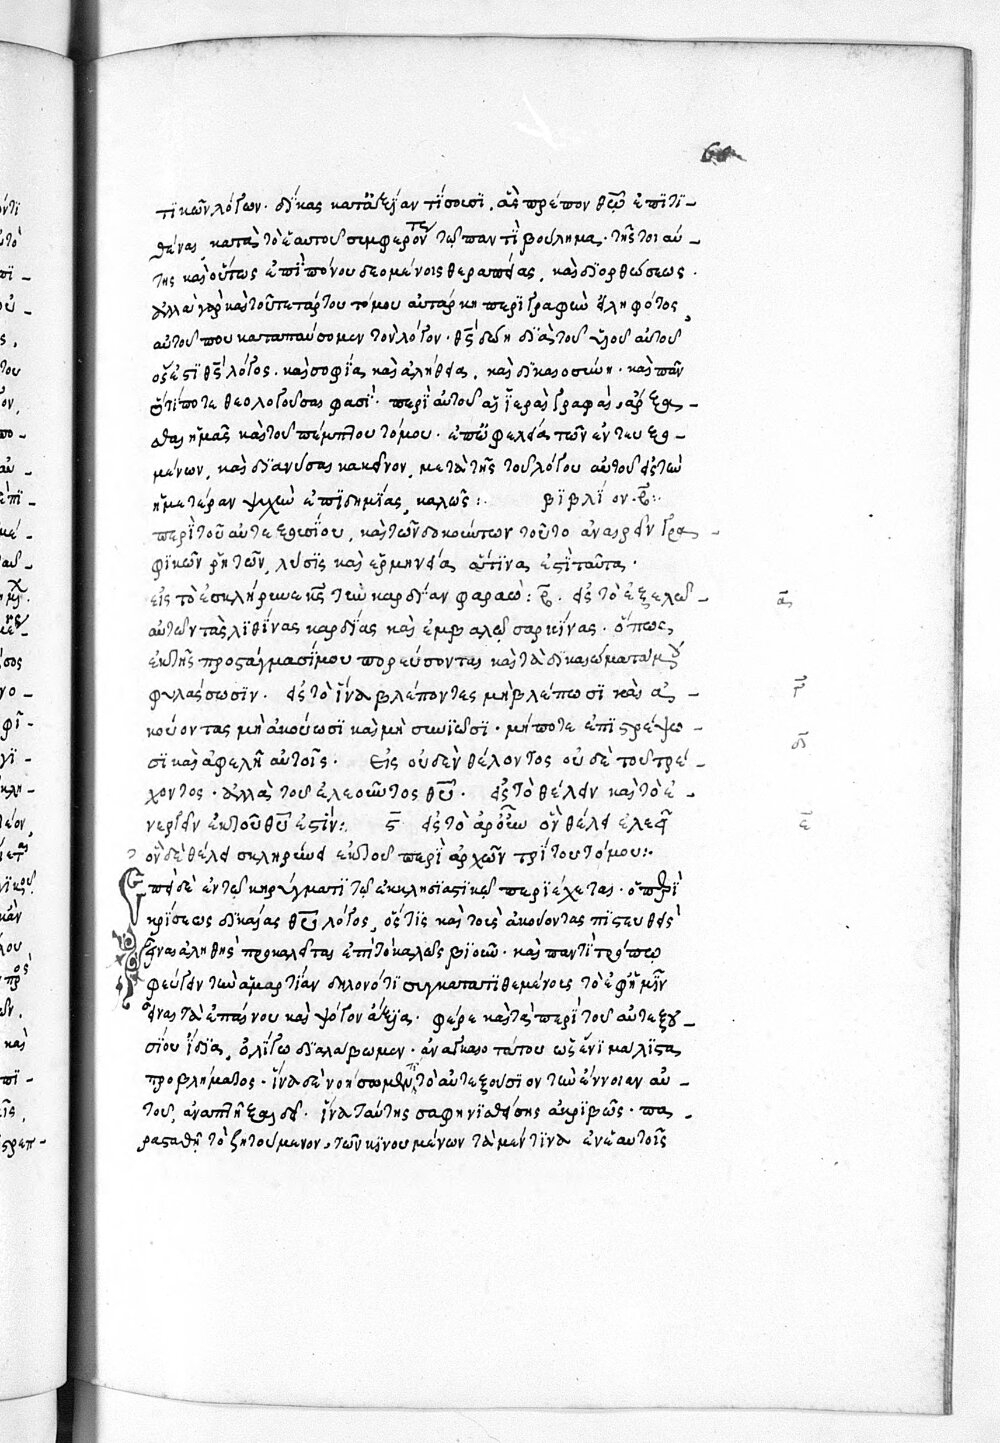 τικῶν λόγων. δίκας κατ' ἀξίαν τίσουσι, ἃς πρέπον θεῷ ἐπιτι-
θέναι, κατὰ τὸ ἑαυτοῦ συμφερόντως τῷ παντὶ βούλημα. τῆς τοιαύ-
της καὶ οὕτως ἐπιπόνου δεομένοις θεραπείας, καὶ διορθώσεως.
ἀλλὰ γὰρ καὶ τοῦ τετάρτου τόμου αὐτάρκη περιγραφὴν εἰληφότος,
αὐτοῦ που καταπαύσομεν τὸν λόγον. θς̄ δῴη διὰ τοῦ υἱοῦ αὐτοῦ
ὅς ἐστι θς̄ λόγος. καὶ σοφία καὶ ἀλήθεια, καὶ δικαιοσύνη. καὶ πᾶν
ὅτι ποτε θεολογοῦσαι φασὶ. περὶ αὐτοῦ αἱ ἱεραὶ γραφαὶ, ἄρξασ-
θαι ἡμᾶς καὶ τοῦ πέμπτου τόμου. ἐπ' ὠφελείᾳ τῶν ἐντευξο-
μένων, καὶ διανύσαι κἀκεῖνον, μετὰ τῆς τοῦ λόγου αὐτοῦ εἰς τὴν
ἡμετέραν ψυχὴν ἐπιδημίας, καλῶς:. βιβλίον.
περὶ τοῦ αὐτεξουσίου, καὶ τῶν δοκούντων τοῦτο ἀναιρεῖν γρα-
φικῶν ῥητῶν, λύσις καὶ ἑρμηνεία ἅτινα ἐστὶ ταῦτα.
εἰς τὸ ἐσκλήρυνε κς̄ τὴν καρδίαν φαραώ: β̄. εἰς τὸ ἐξελῶ ᾱ
αὐτῶν τὰς λιθίνας καρδίας καὶ ἐμβαλῶ σαρκίνας. ὅπως,
ἐν τοῖς προστάγμασί μου πορεύσονται καὶ τὰ δικαιώματά μου γ̄
φυλάσσωσιν. εἰς τὸ ἵνα βλέποντες μὴ βλέπωσι καὶ ἀ-
κούοντας μὴ ἀκούωσι καὶ μὴ συνιῶσι. μήποτε ἐπιστρέψω- δ̄
σι καὶ ἀφεθῇ αὐτοῖς. Εἰς οὐδὲν θέλοντος οὐδὲ τοῦ τρέ-
χοντος. ἀλλὰ τοῦ ἐλεοῦντος θῡ. εἰς τὸ θέλειν καὶ τὸ ἐ- ε̄
νεργεῖν ἐκ τοῦ θῡ ἐστίν:. ς̄ εἰς τὸ ἄρ' οὖν ὃν θέλει ἐλεεῖ
ὃν δὲ θέλει σκληρύνει ἐκ τοῦ περὶ ἀρχῶν τρίτου τόμου:.
Ἐπεὶ δὲ ἐν τῷ κηρύγματι τῷ ἐκκλησιαστικῷ περιέχεται. ὁ περὶ
κρίσεως δικαίας θῡ λόγος, ὅστις καὶ τοὺς ἀκούοντας πιστευθεὶς
εἶναι ἀληθὴς προκαλεῖται ἐπὶ τὸ καλῶς βιοῦν. καὶ παντὶ τρόπῳ
φεύγειν τὴν ἁμαρτίαν δηλονότι συγκατατιθεμένους τὸ ἐφ' ἡμῖν
εἶναι τὰ ἐπαίνου καὶ ψόγου ἄξια. φέρε καὶ τὰ περὶ τοῦ αὐτεξου-
σίου ἰδίᾳ, ὀλίγῳ διαλάβωμεν. ἀναγκαιοτάτου ὡς ἔνι μάλιστα
προβλήματος. ἵνα δὲ νοήσωμεν τί τὸ αὐτεξούσιον τὴν ἔννοιαν αὐ-
τοῦ, ἀναπτῦξαι δεῖ. ἵνα ταύτης σαφηνισθείσης ἀκριβῶς. πα-
ρασταθῇ τὸ ζητούμενον, τῶν κινουμένων τὰ μέν τινα ἐν ἑαυτοῖς